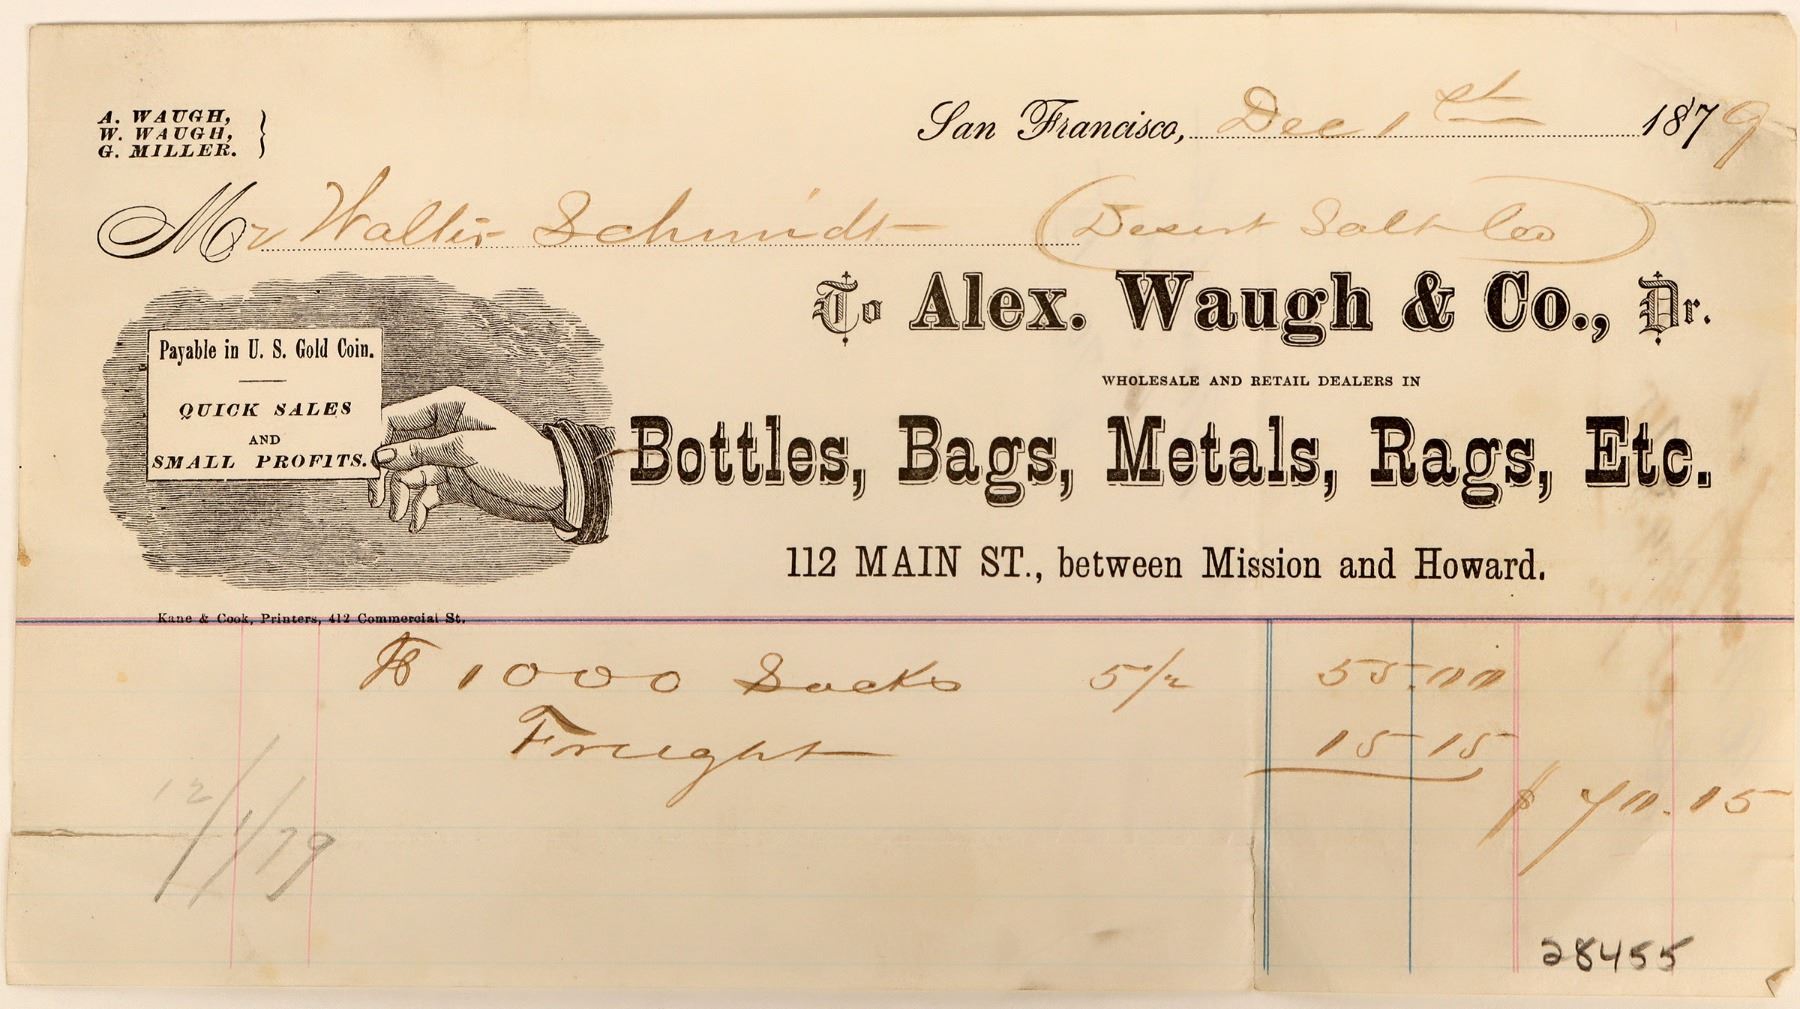 A. WAUGH,
W. WAUGH,
G. MILLER.
San Francisco, Dec 1st 1879
Mr Walter Schmidt (Desert Salt Co)
To Alex. Waugh & Co., Dr.
WHOLESALE AND RETAIL DEALERS IN
Bottles, Bags, Metals, Rags, Etc.
112 MAIN ST., between Mission and Howard.
Payable in U. S. Gold Coin.
QUICK SALES
AND
SMALL PROFITS.
Kane & Cook, Printers, 412 Commercial St.
1000 Sacks 5 1/2 55.00
Freight 15 15
$ 70.15
12/1/79
28455